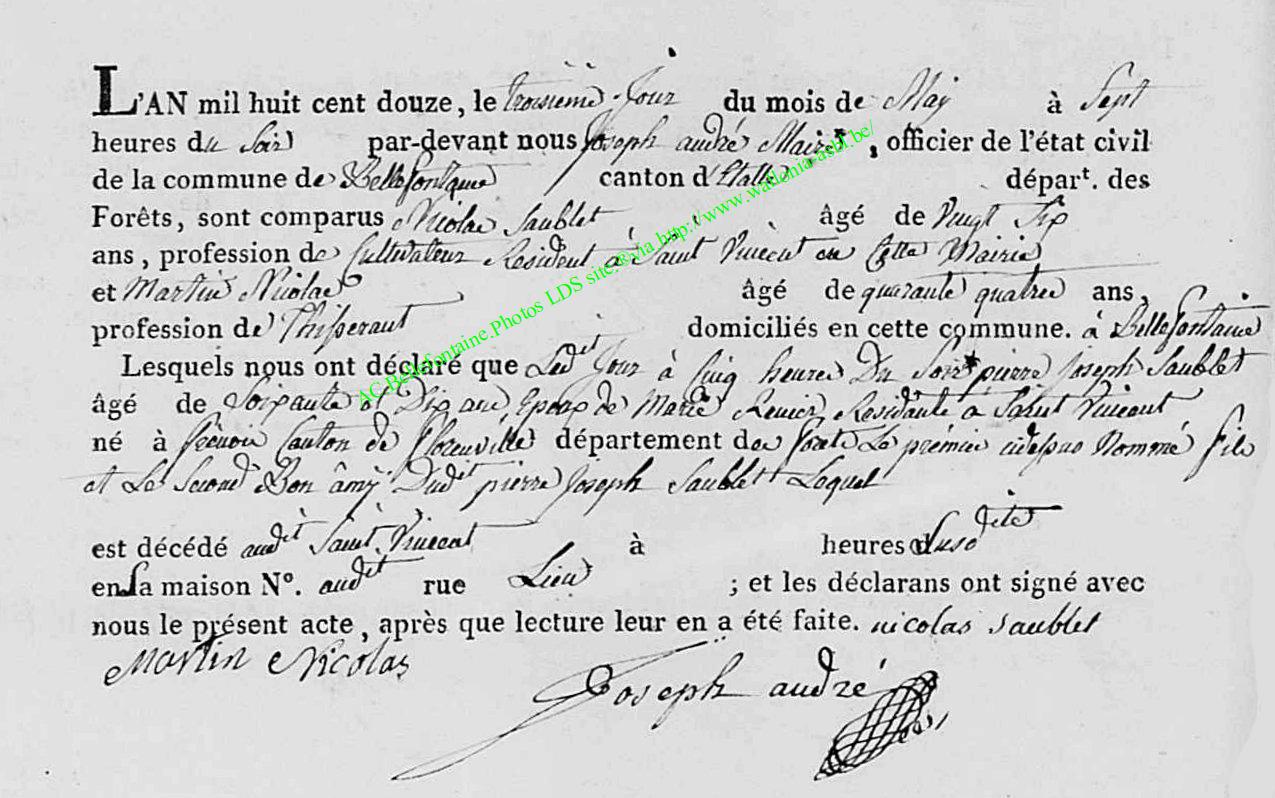 L'AN mil huit cent douze, le troisieme Jour du mois de May à Sept
heures du Soir par-devant nous Joseph andré Maire, officier de l'état civil
de la commune de Bellefontaine canton d'Etalle départ. des
Forêts, sont comparus Nicolas Saublet âgé de Vingt Six
ans, profession de Cultivateur Resident à Saint Vincent en Cette Mairie
et Martin Nicolas âgé de quarante quatre ans,
profession de Thisserant domiciliés en cette commune. à Bellefontaine
Lesquels nous ont déclaré que Ledit Jour à Cinq heures Du Soir pierre Joseph Saublet
âgé de Soixante et Dix ans, Epoux de Marie Renier, Residante à Saint Vincent
né à Canton de Florenville département des forets Le prémier cidessus Nommé fils
et Le Second Bon âmÿ Dudit pierre Joseph Saublet Lequel
est décédé audit Saint Vincent à heures Susdite
en sa maison Nº. audit rue Lieu ; et les déclarans ont signé avec
nous le présent acte, après que lecture leur en a été faite. nicolas saublet
Martin Nicolas
Joseph andré
AC Bellefontaine.Photos LDS site ® via http://www.wallonia-asbl.be/